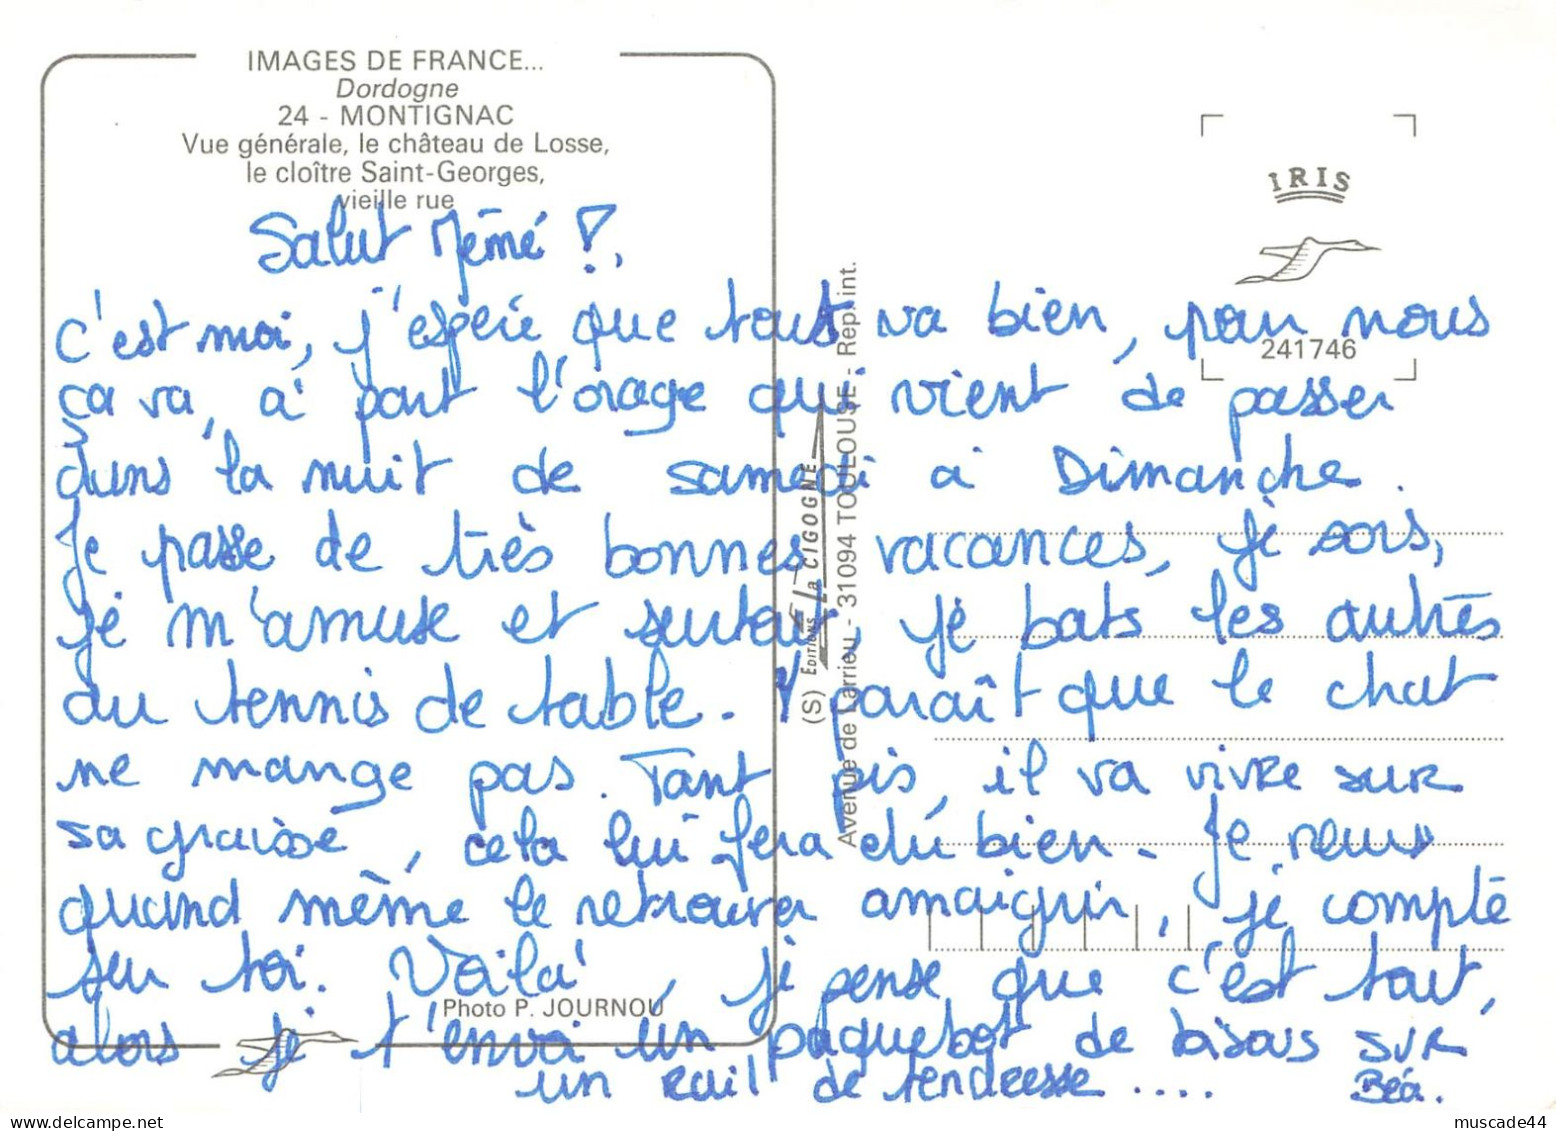 IMAGES DE FRANCE...
Dordogne
24 - MONTIGNAC
Vue générale, le château de Losse,
le cloître Saint-Georges,
vieille rue
IRIS
241746
Salut Mémé !
c'est moi, j'espère que tout va bien, pour nous
ça va, à part l'orage qui vient de passer
dans la nuit de samedi à Dimanche.
Je passe de très bonnes vacances, je sors,
je m'amuse et surtout, je bats les autres
au tennis de table. Y paraît que le chat
ne mange pas. Tant pis, il va vivre sur
sa graisse, cela lui fera du bien. Je veux
quand même le retrouver amaigrir, je compte
sur toi. Voilà, je pense que c'est tout,
alors je t'envoi un paquebot de bisous SUR
un rail de tendresse ....
Béa.
Photo P. JOURNOU
(S) EDITIONS La CIGOGNE
Avenue de Larrieu - 31094 TOULOUSE - Rep. int.
muscade44